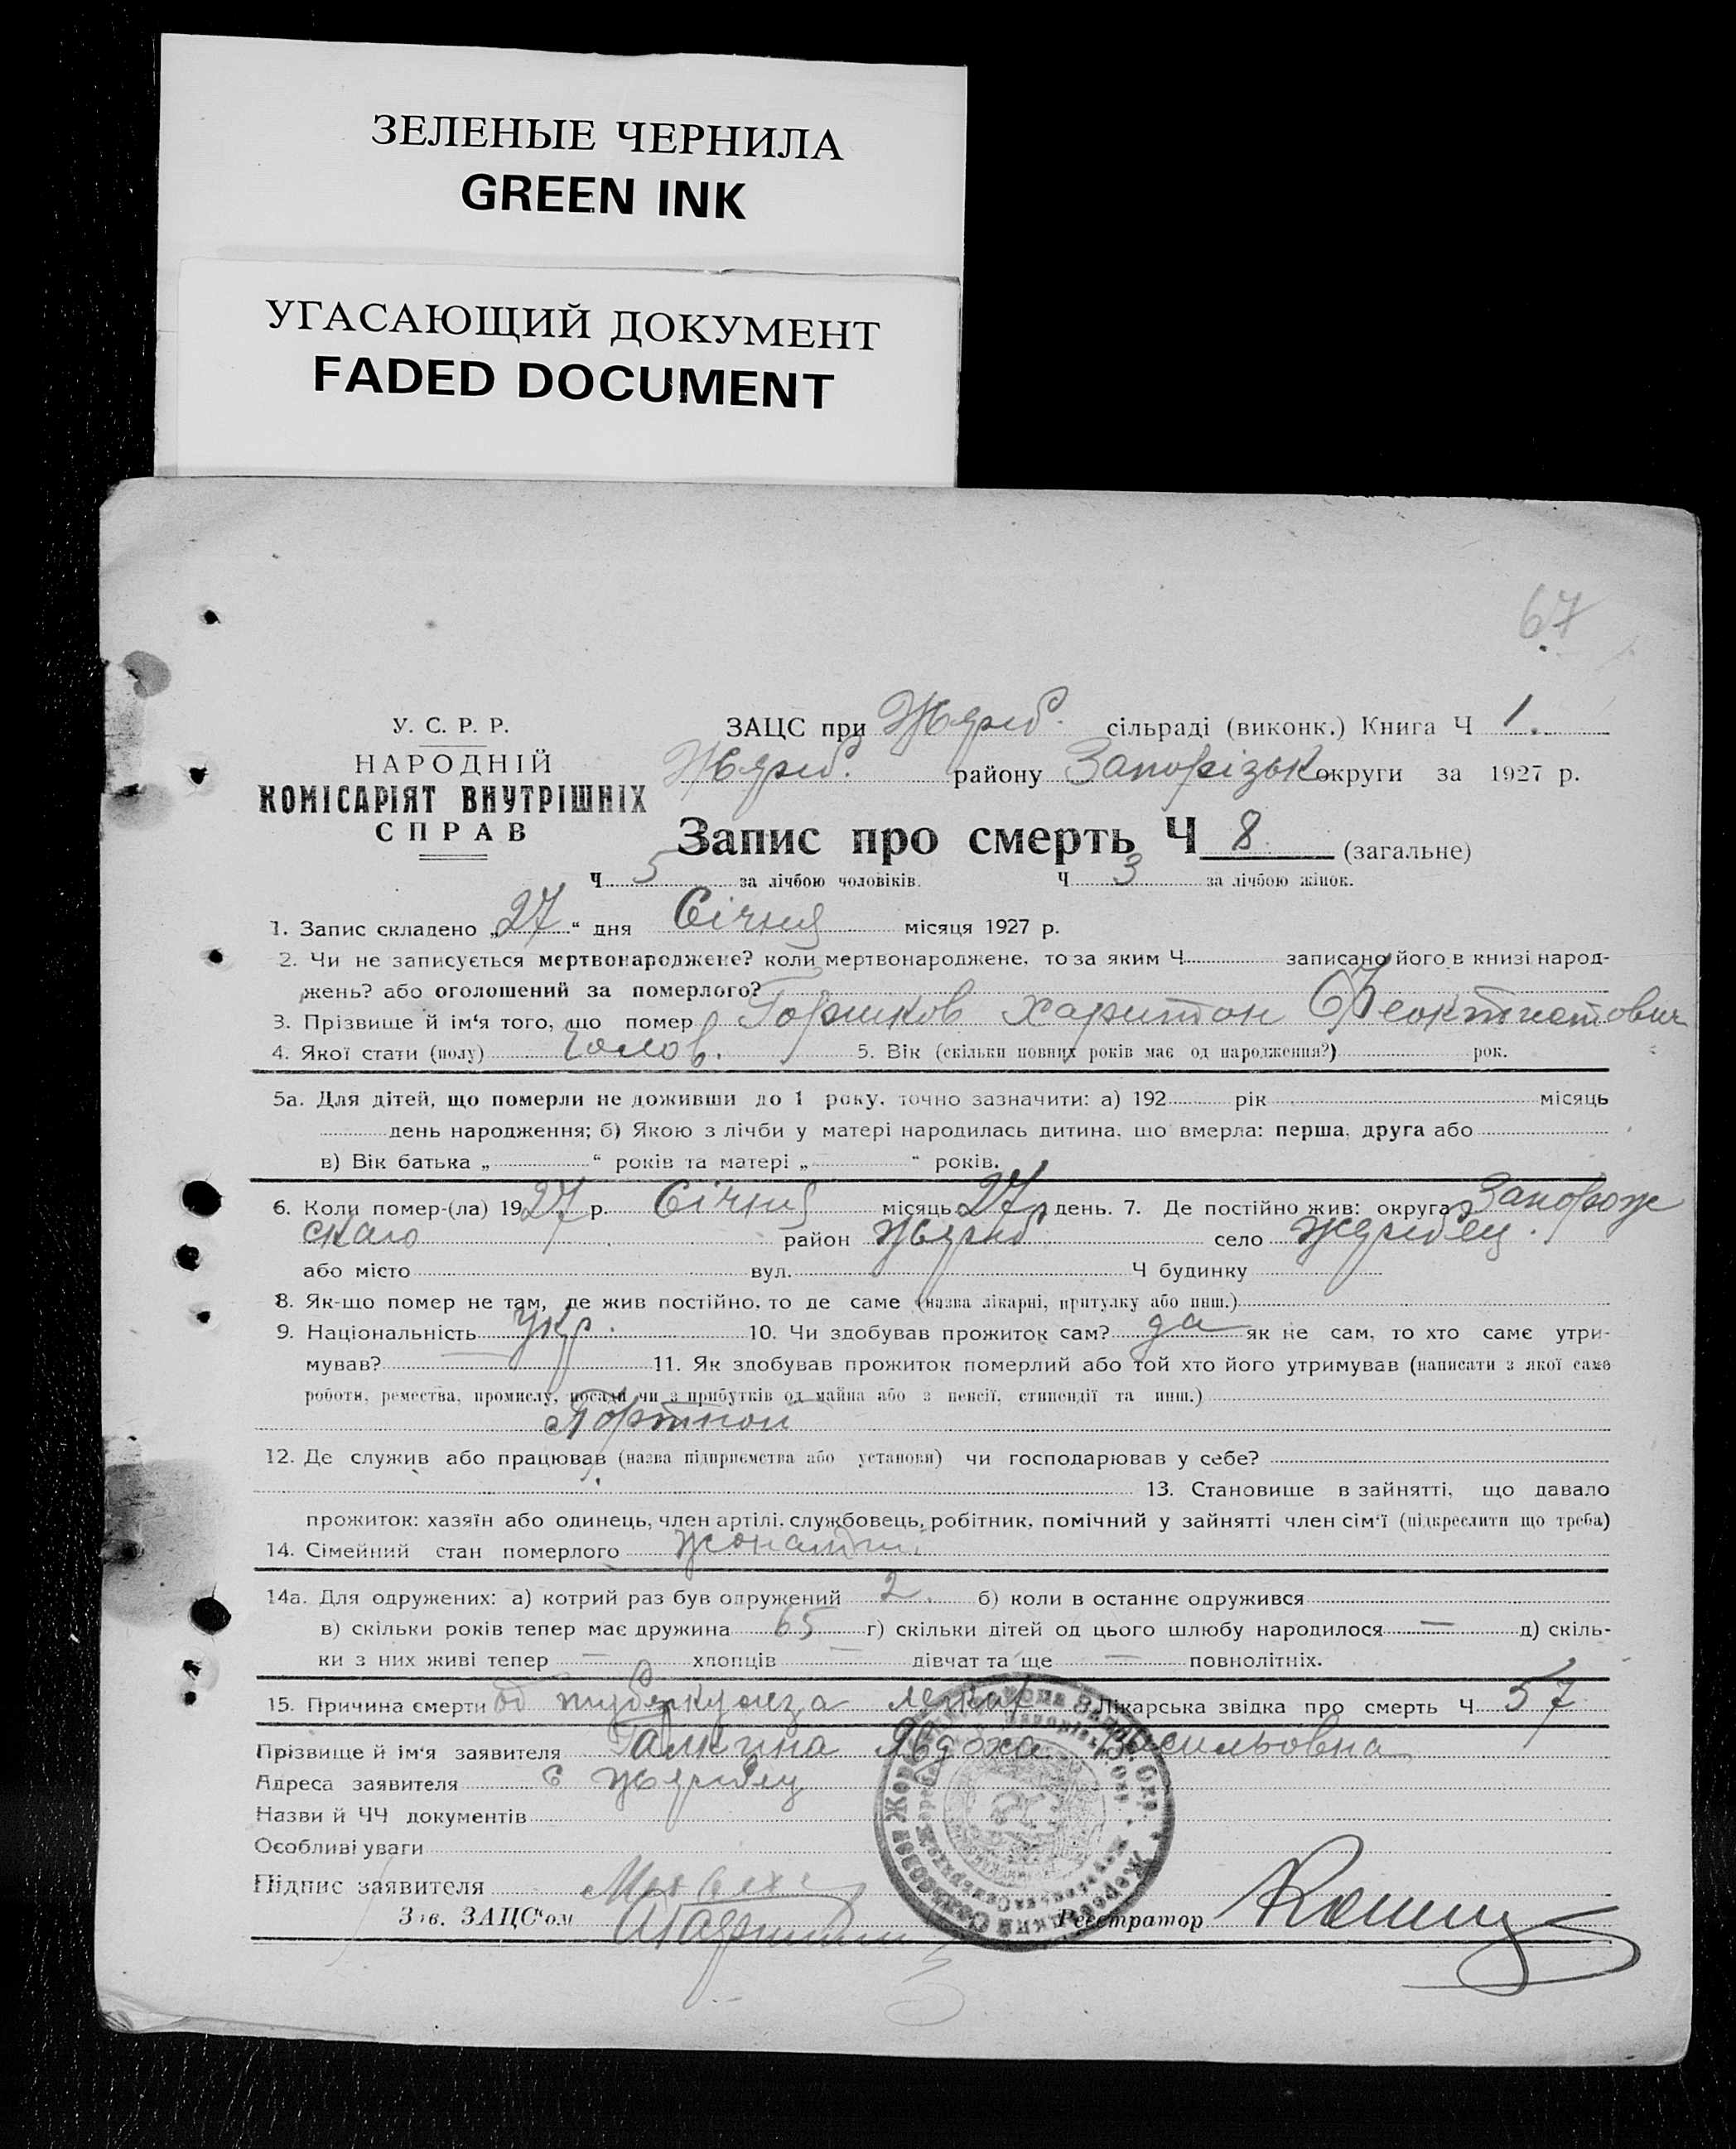 ЗЕЛЕНЫЕ ЧЕРНИЛА
GREEN INK
УГАСАЮЩИЙ ДОКУМЕНТ
FADED DOCUMENT
67
У. С. Р. Р.
НАРОДНІЙ
КОМІСАРІЯТ ВНУТРІШНІХ
СПРАВ
ЗАЦС при Жереб. сільраді (виконк.) Книга Ч 1.
Жереб. району Запорізьк округи за 1927 р.
Запис про смерть Ч 8 (загальне)
Ч 5 за лічбою чоловіків. Ч 3 за лічбою жінок.
1. Запис складено „27“ дня Січня місяця 1927 р.
2. Чи не записується мертвонароджене? коли мертвонароджене, то за яким Ч записано його в книзі народ-
жень? або оголошений за померлого?
3. Прізвище й ім'я того, що помер Горшков Харитон Феоктистович
4. Якої стати (полу) Чолов. 5. Вік (скільки повних років має од народження?) 67 рок.
5а. Для дітей, що померли не доживши до 1 року, точно зазначити: а) 192 рік місяць
день народження; б) Якою з лічби у матері народилась дитина, що вмерла: перша, друга або
в) Вік батька „ “ років та матері „ “ років.
6. Коли помер-(ла) 1927 р. Січня місяць 27 день. 7. Де постійно жив: округа Запорож
скаго район Жереб. село Жеребец.
або місто вул. Ч будинку
8. Як-що помер не там, де жив постійно, то де саме (назва лікарні, притулку або инш.)
9. Національність Укр. 10. Чи здобував прожиток сам? да як не сам, то хто саме утри-
мував? 11. Як здобував прожиток померлий або той хто його утримував (написати з якої саме
роботи, ремества, промислу, посади чи з прибутків од майна або з пенсії, стипендії та инш.)
Портной
12. Де служив або працював (назва підприємства або установи) чи господарював у себе?
13. Становище в зайнятті, що давало
прожиток: хазяїн або одинець, член артілі, службовець, робітник, помічний у зайнятті член сім'ї (підкреслити що треба)
14. Сімейний стан померлого жонатий.
14а. Для одружених: а) котрий раз був одружений 2. б) коли в останнє одружився
в) скільки років тепер має дружина 65 г) скільки дітей од цього шлюбу народилося — д) скіль-
ки з них живі тепер — хлопців — дівчат та ще — повнолітніх.
15. Причина смерти од туберкульоза легких Лікарська звідка про смерть Ч 57
Прізвище й ім'я заявителя Галкина Явдоха Васильовна
Адреса заявителя с Жеребец
Назви й ЧЧ документів
Особливі уваги
Підпис заявителя
Зав. ЗАЦС'ом
Реєстратор